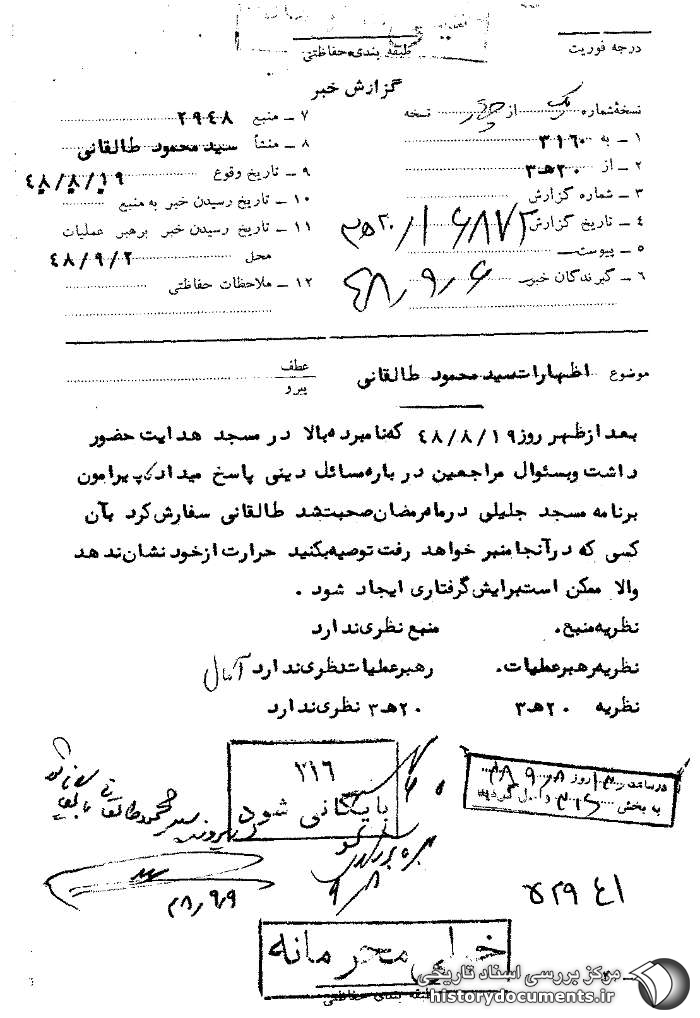 درجه فوریت
طبقه بندی حفاظتی
گزارش خبر
نسخهٔ شماره یک از چهار نسخه
۱ ـ به ۳۱۶
۲ ـ از ۲۰هـ۳
۳ ـ شماره گزارش
۴ ـ تاریخ گزارش
۵ ـ پیوست
۶ ـ گیرندگان خبر
۴۸/۹/۶
۷ ـ منبع ۲۹۴۸
۸ ـ منشأ سید محمود طالقانی
۹ ـ تاریخ وقوع ۴۸/۸/۱۹
۱۰ ـ تاریخ رسیدن خبر به منبع
۱۱ ـ تاریخ رسیدن خبر برهبر عملیات
محل ۴۸/۹/۲
۱۲ ـ ملاحظات حفاظتی
موضوع اظهارات سید محمود طالقانی
عطف
پیرو
بعد از ظهر روز ۴۸/۸/۱۹ که نامبرده بالا در مسجد هدایت حضور
داشت وبسئوال مراجعین در باره مسائل دینی پاسخ میداد پیرامون
برنامه مسجد جلیلی در ماه رمضان صحبت شد طالقانی سفارش کرد بآن
کسی که در آنجا منبر خواهد رفت توصیه بکنید حرارت از خود نشان ندهد
والا ممکن است برایش گرفتاری ایجاد شود .
نظریه منبع. منبع نظری ندارد
نظریه رهبر عملیات. رهبر عملیات نظری ندارد
نظریه ۲۰هـ۳ ۲۰هـ۳ نظری ندارد
۳۱۶
بایگانی شود
در ساعت روز
به بخش ۳۱۶ واصل گردید
۹/۸
۴۸/۹/۹
خیلی محرمانه
طبقه بندی حفاظتی
مرکز بررسی اسناد تاریخی
historydocuments.ir